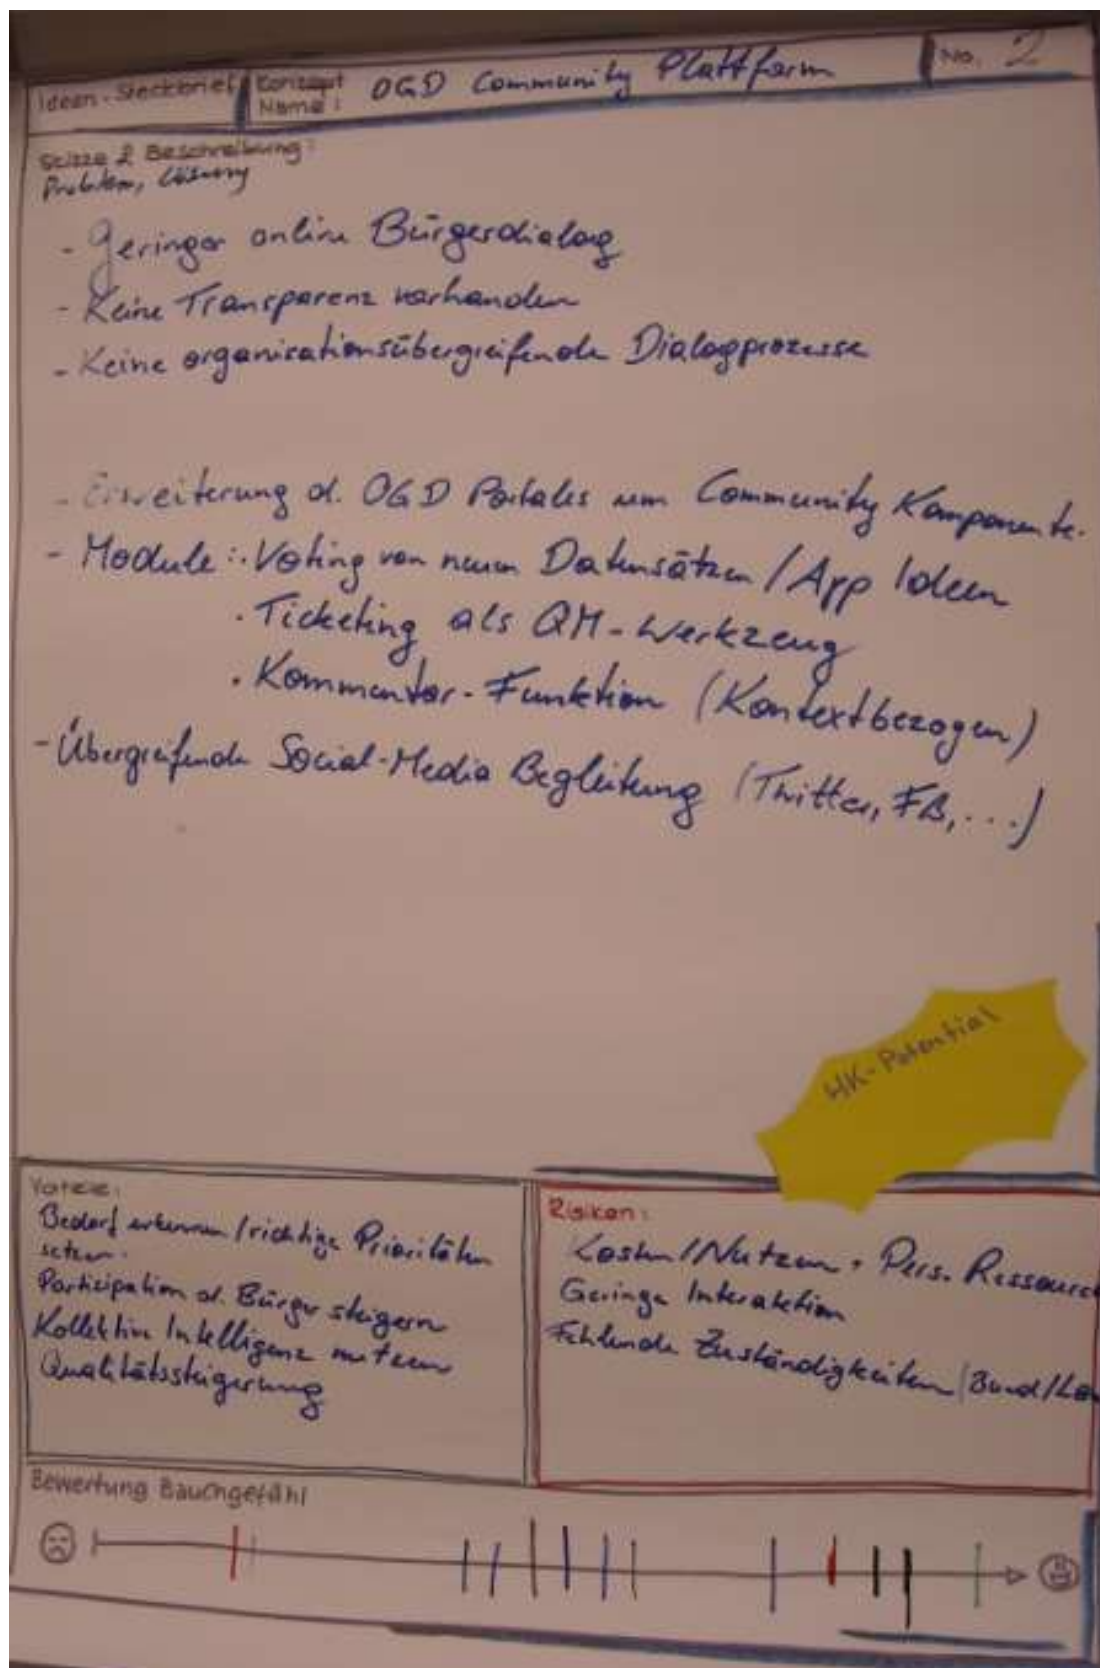 Ideen-Steckbrief Konzept Name: OGD Community Plattform No. 2
Skizze & Beschreibung:
Problem, Lösung
- Geringer online Bürgerdialog
- Keine Transparenz vorhanden
- Keine organisationsübergreifende Dialogprozesse
- Erweiterung d. OGD Portales um Community Komponente.
- Module: · Voting von neuen Datensätzen / App Ideen
· Ticketing als QM-Werkzeug
· Kommentar-Funktion (Kontextbezogen)
- Übergreifende Social-Media Begleitung (Twitter, FB, ...)
HK-Potential
Vorteile:
Bedarf erkennen / richtige Prioritäten
setzen.
Partizipation d. Bürger steigern
Kollektive Intelligenz nutzen
Qualitätssteigerung
Risiken:
Kosten/Nutzen + Pers. Ressourc
Geringe Interaktion
Fehlende Zuständigkeiten (Bund/Län
Bewertung Bauchgefühl